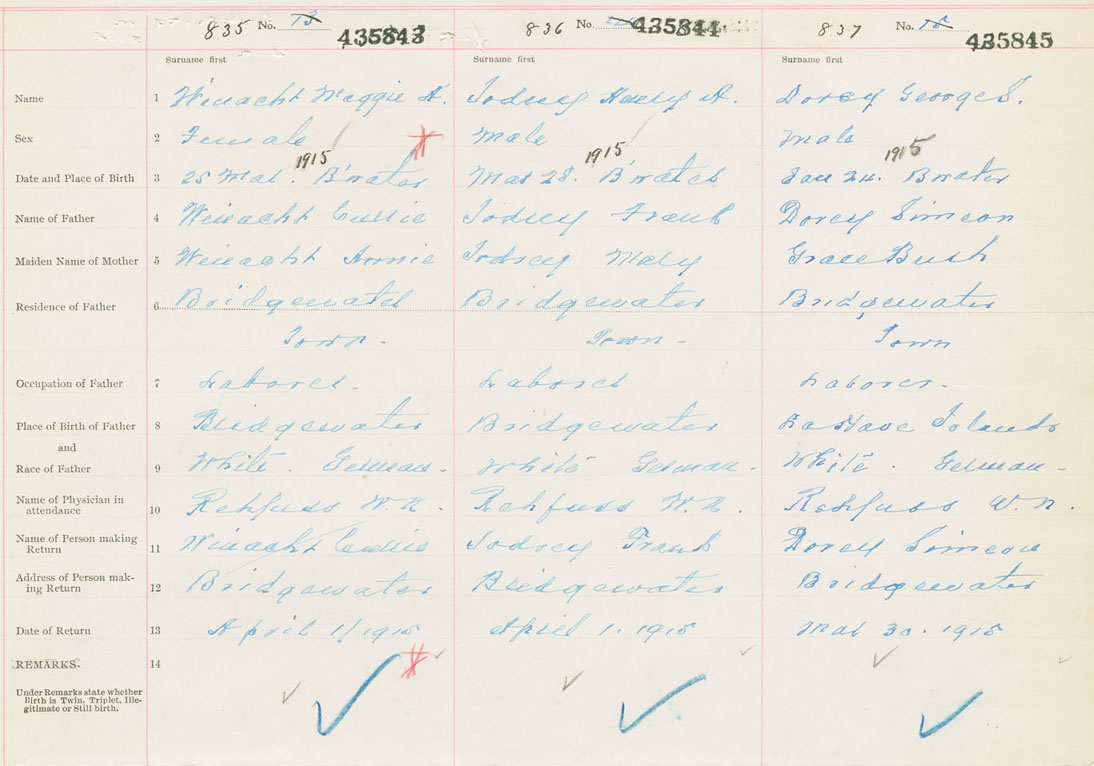 835 No. 13 435843 836 No. 435844 837 No. 15 435845
Surname first Surname first Surname first
Name 1 Winacht Maggie A. Jodrey Harry A. Dorey George S.
Sex 2 Female Male Male
1915 1915 1915
Date and Place of Birth 3 25 Mar. B'water Mar 28. B'water Jan 24. B'water
Name of Father 4 Winacht Jodrey Frank Dorey Simeon
Maiden Name of Mother 5 Winacht Annie Jodrey Mary Grace Bush
Residence of Father 6 Bridgewater Bridgewater Bridgewater
Town - Town - Town
Occupation of Father 7 Laborer. Laborer Laborer.
Place of Birth of Father 8 Bridgewater Bridgewater LaHave Islands
and
Race of Father 9 White. German. White German. White. German -
Name of Physician in
attendance 10 Rehfuss W. N. Rehfuss W. N. Rehfuss W. N.
Name of Person making
Return 11 Winacht Jodrey Frank Dorey Simeon
Address of Person mak-
ing Return 12 Bridgewater Bridgewater Bridgewater
Date of Return 13 April 1/1915 April 1. 1915 Mar 30. 1915
REMARKS. 14
Under Remarks state whether
Birth is Twin, Triplet, Ille-
gitimate or Still birth.